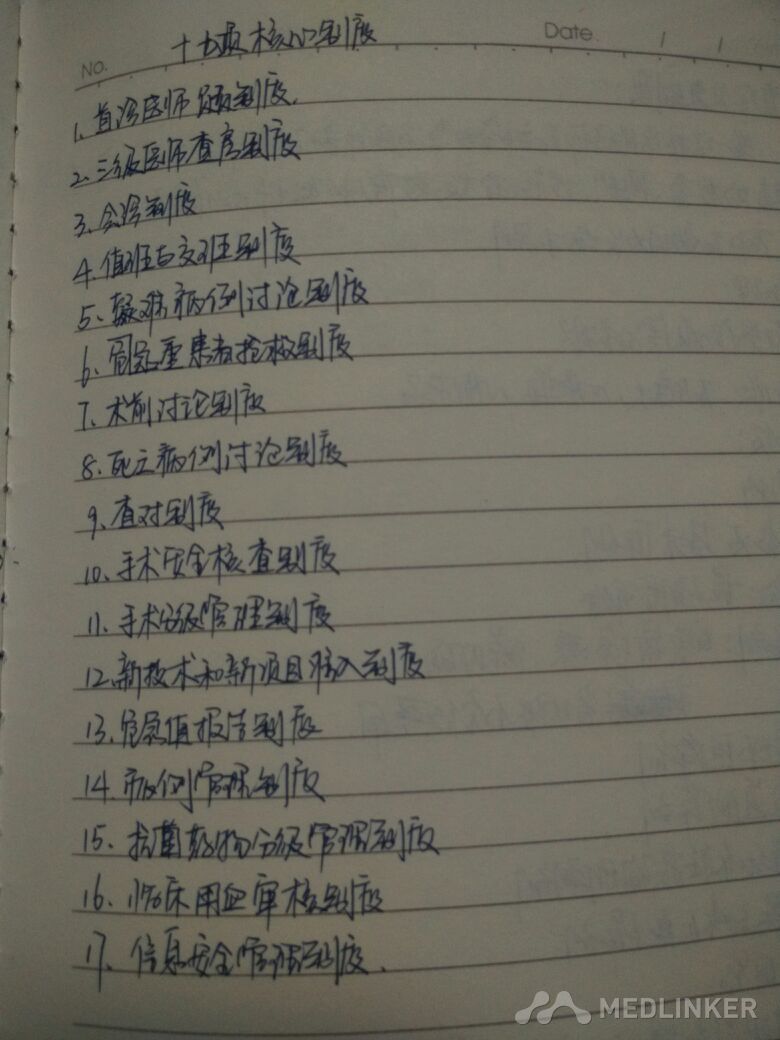 十七项核心制度
No.
Date.
1、首诊医师负责制度.
2、三级医师查房制度
3、会诊制度
4、值班与交班制度
5、疑难病例讨论制度
6、危急重患者抢救制度
7、术前讨论制度
8、死亡病例讨论制度
9、查对制度
10、手术安全核查制度
11、手术分级管理制度
12、新技术和新项目准入制度
13、危急值报告制度
14、病例管理制度
15、抗菌药物分级管理制度
16、临床用血审核制度
17、信息安全管理制度.
MEDLINKER